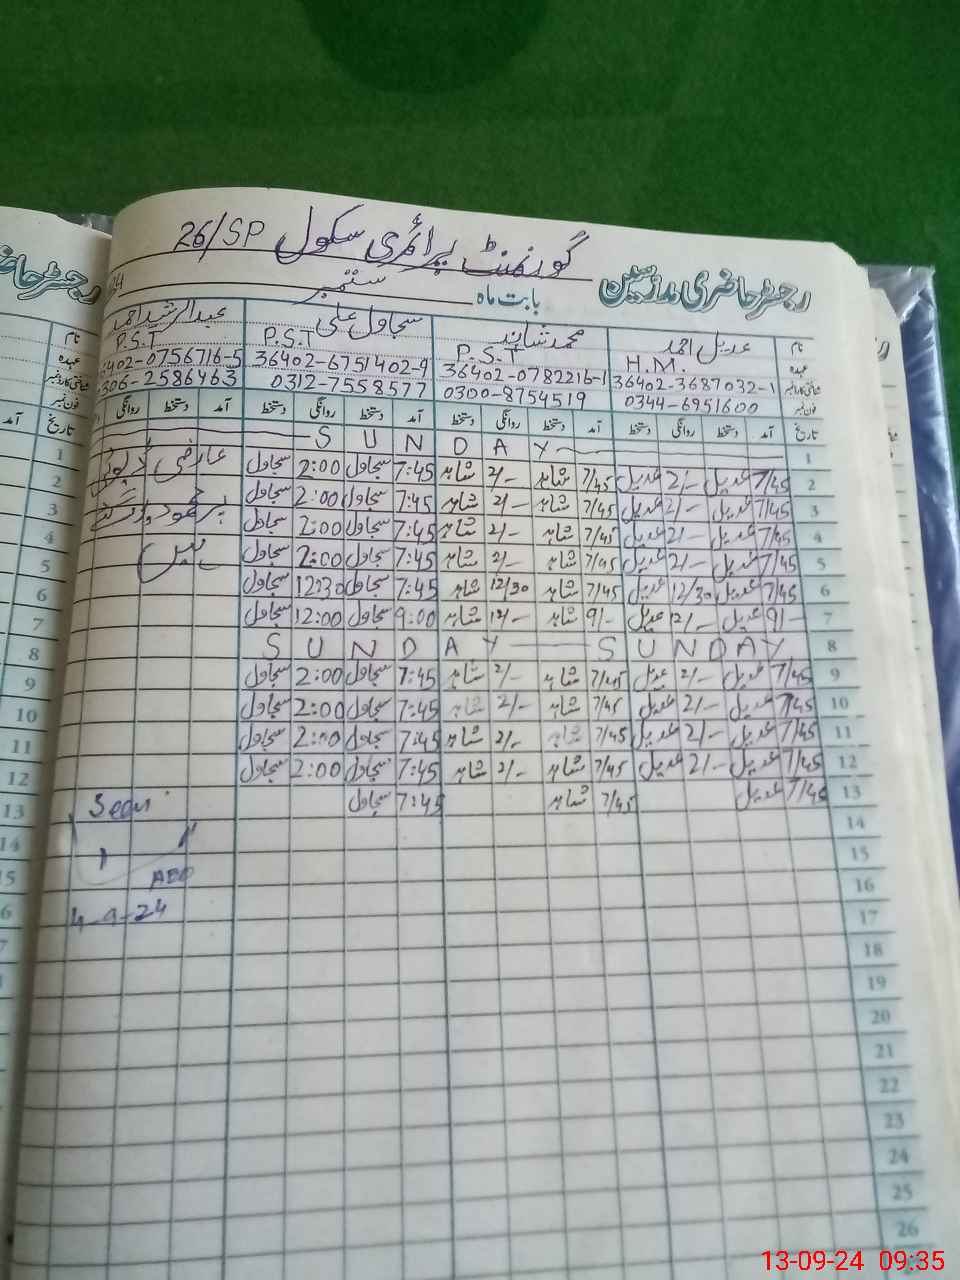 گورنمنٹ پرائمری سکول 26/SP
رجسٹر حاضری مدرسین بابت ماہ ستمبر
نام عدیل احمد محمد شاہد سجاول علی عبدالرشید احمد
عہدہ H.M. P.S.T P.S.T P.S.T
شناختی کارڈ نمبر 36402-3687032-1 36402-0782216-1 36402-6751402-9 6402-0756716-5
فون نمبر 0344-6951600 0300-8754519 0312-7558577 306-2586463
تاریخ آمد دستخط روانگی دستخط آمد دستخط روانگی دستخط آمد دستخط روانگی دستخط آمد دستخط روانگی
1 SUNDAY
2 7/45 عدیل 2/- عدیل 7/45 شاہد 2/- شاہد 7:45 سجاول 2:00 سجاول عارضی ڈیوٹی
3 7/45 عدیل 2/- عدیل 7/45 شاہد 2/- شاہد 7:45 سجاول 2:00 سجاول پر
4 7/45 عدیل 2/- عدیل 7/45 شاہد 2/- شاہد 7:45 سجاول 2:00 سجاول
5 7/45 عدیل 2/- عدیل 7/45 شاہد 2/- شاہد 7:45 سجاول 2:00 سجاول ہیں
6 7/45 عدیل 12/30 عدیل 7/45 شاہد 12/30 شاہد 7:45 سجاول 12:30 سجاول
7 9/- عدیل 12/- عدیل 9/- شاہد 12/- شاہد 9:00 سجاول 12:00 سجاول
8 SUNDAY SUNDAY
9 7/45 عدیل 2/- عدیل 7/45 شاہد 2/- شاہد 7:45 سجاول 2:00 سجاول
10 7/45 عدیل 2/- عدیل 7/45 شاہد 2/- شاہد 7:45 سجاول 2:00 سجاول
11 7/45 عدیل 2/- عدیل 7/45 شاہد 2/- شاہد 7:45 سجاول 2:00 سجاول
12 7/45 عدیل 2/- عدیل 7/45 شاہد 2/- شاہد 7:45 سجاول 2:00 سجاول
13 7/45 عدیل 7/45 شاہد 7:45 سجاول
Seen
14
15
AEO
16
4-9-24
17
18
19
20
21
22
23
24
25
26
13-09-24 09:35